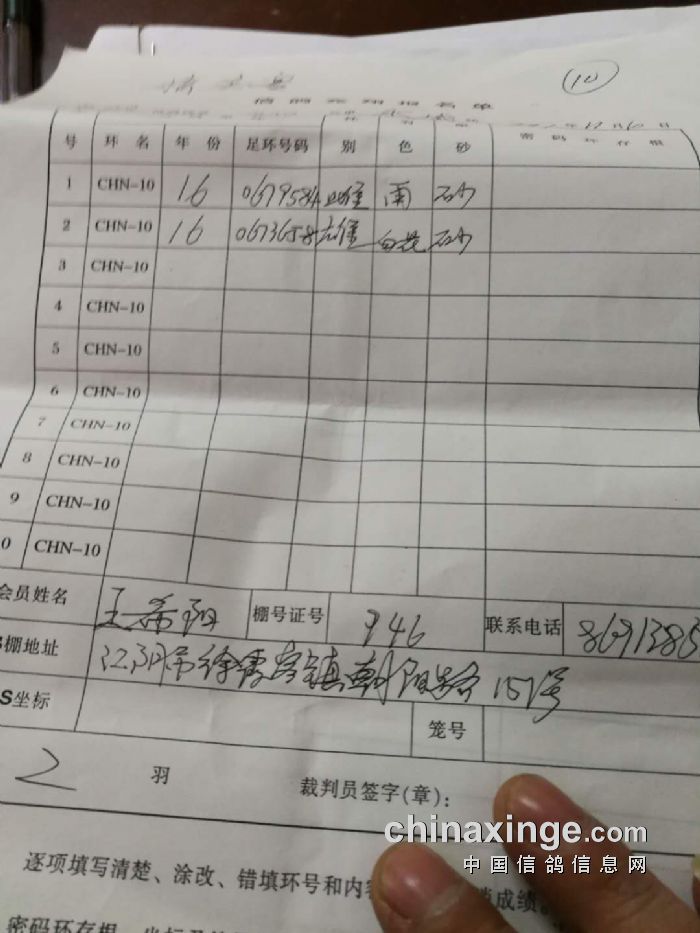 10
信鸽竞翔报名单
号 环名 年份 足环号码 别 色 砂 密码环存根
1 CHN-10 16 0679584 雄 雨 砂
2 CHN-10 16 0673658 雄 白花 砂
3 CHN-10
4 CHN-10
5 CHN-10
6 CHN-10
7 CHN-10
8 CHN-10
9 CHN-10
0 CHN-10
会员姓名 王希阳 棚号证号 946 联系电话
棚地址 江阴市徐霞客镇朝阳路157号
S坐标 笼号
2 羽 裁判员签字(章):
chinaxinge.com
中国信鸽信息网
逐项填写清楚、涂改、错填环号和内容 成绩。
密码环存根、坐标